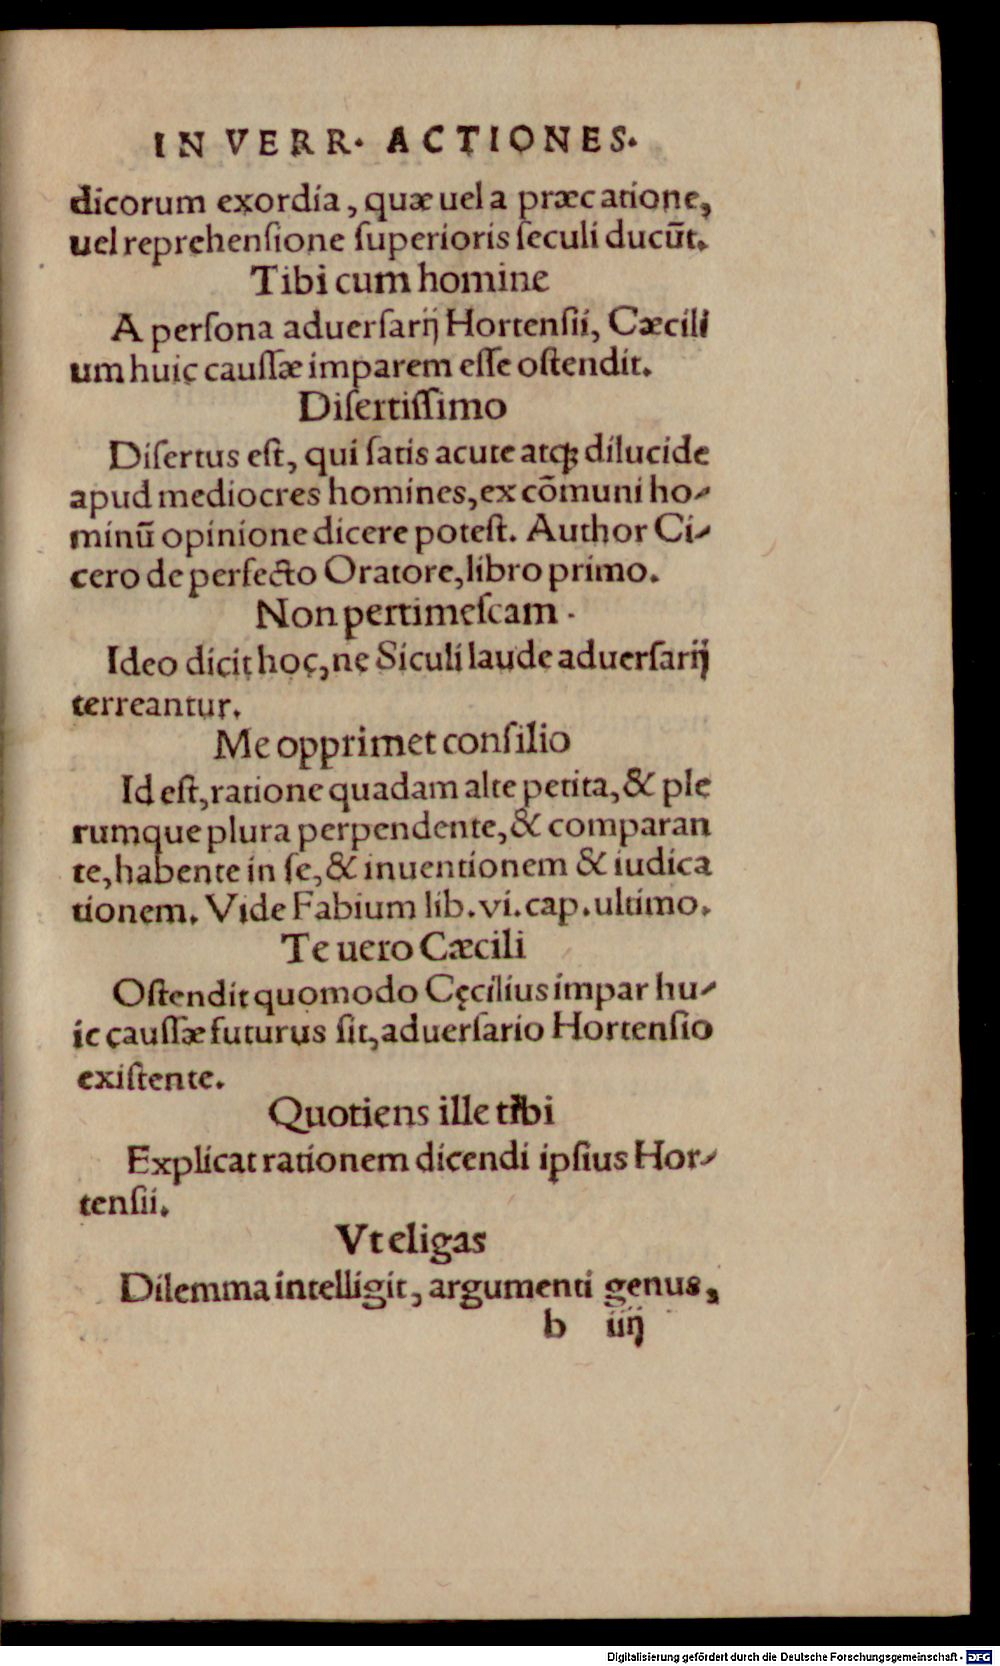 IN VERR. ACTIONES.
dicorum exordia, quæ uel a præcatione,
uel reprehensione superioris seculi ducūt.
Tibi cum homine
A persona aduersarij Hortensii, Cæcili
um huic caussæ imparem esse ostendit.
Disertissimo
Disertus est, qui satis acute atqꝫ dilucide
apud mediocres homines, ex cōmuni ho-
minū opinione dicere potest. Author Ci-
cero de perfecto Oratore, libro primo.
Non pertimescam.
Ideo dicit hoc, ne Siculi laude aduersarij
terreantur.
Me opprimet consilio
Id est, ratione quadam alte petita, & ple
rumque plura perpendente, & comparan
te, habente in se, & inuentionem & iudica
tionem. Vide Fabium lib. vi. cap. ultimo.
Te uero Cæcili
Ostendit quomodo Cęcilius impar hu-
ic caussæ futurus sit, aduersario Hortensio
existente.
Quotiens ille tibi
Explicat rationem dicendi ipsius Hor-
tensii.
Vt eligas
Dilemma intelligit, argumenti genus,
b iiij
Digitalisierung gefördert durch die Deutsche Forschungsgemeinschaft - DFG